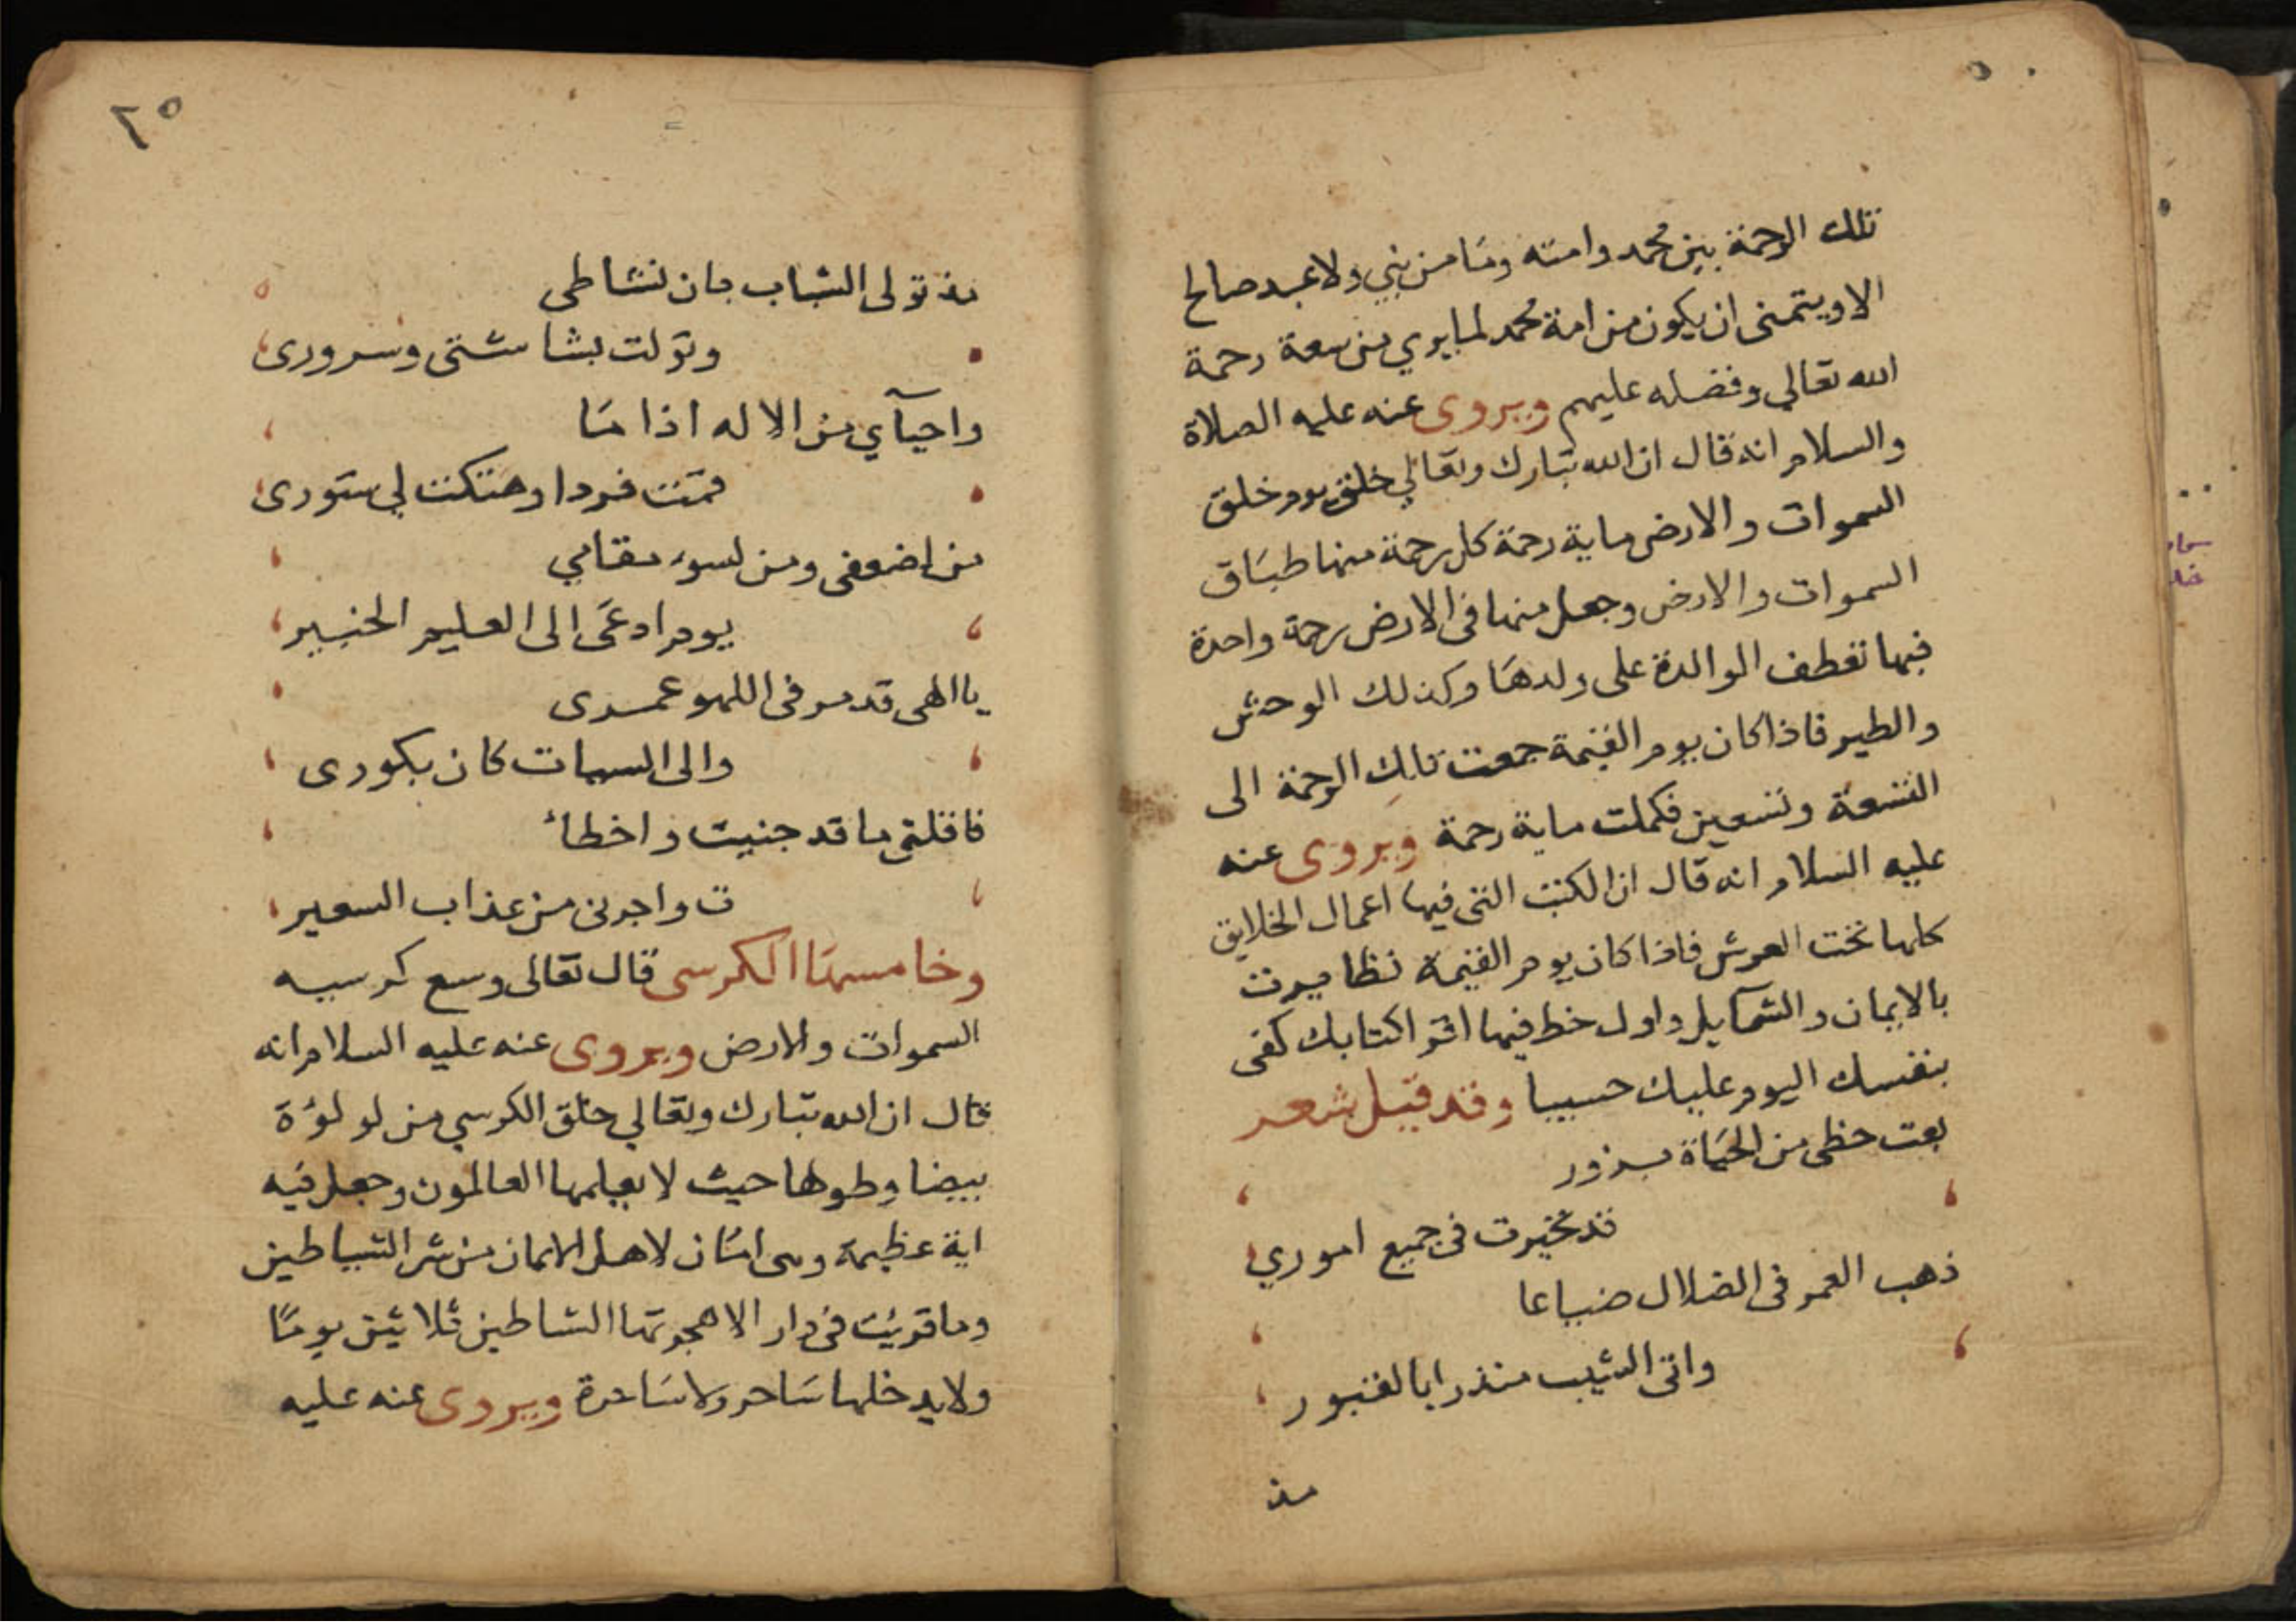 تلك الرحمة بين محمد وامته وما من نبي ولا عبد صالح
الا ويتمنى ان يكون من امة محمد لما يري من سعة رحمة
الله تعالي وفضله عليهم ويروى عنه عليه الصلاة
والسلام انه قال ان الله تبارك وتعالي خلق يوم خلق
السموات والارض ماية رحمة كل رحمة منها طباق
السموات والارض وجعل منها فى الارض رحمة واحدة
فبها تعطف الوالدة على ولدها وكذلك الوحش
والطير فاذا كان يوم القيمة جمعت تلك الرحمة الى
التسعة وتسعين فكملت ماية رحمة ويروى عنه
عليه السلام انه قال ان الكتب التى فيها اعمال الخلايق
كلها تحت العرش فاذا كان يوم القيمة تطايرت
بالايمان والشمايل واول خط فيها اقرا كتابك كفى
بنفسك اليوم عليك حسيبا وقد قيل شعر
بعت حظى من الحياة بزور
قد تحيرت فى جميع اموري
ذهب العمر فى الضلال ضياعا
واتى الشيب منذرا بالقبور
مذ
٢٥
مذ تولى الشباب بان نشاطى
وتولت بشاشتى وسرورى
واحيآي من الاله اذا ما
قمت فردا وهتكت لي ستورى
من اضعفى ومن لسوء مقامي
يوم ادعى الى العليم الخبير
يا الهى قد مر فى اللهو عمرى
والى السيات كان بكورى
فاقلنى ما قد جنيت واخطاء
ت واجرنى من عذاب السعير
وخامسها الكرسى قال تعالى وسع كرسيه
السموات والارض ويروى عنه عليه السلام انه
قال ان الله تبارك وتعالي خلق الكرسي من لولوة
بيضا وطولها حيث لا يعلمها العالمون وجعل فيه
اية عظيمة وهى امان لاهل الايمان من شر الشياطين
وما قريت فى دار الا هجرتها الشاطين ثلاثين يوما
ولا يدخلها ساحر ولا ساحرة ويروى عنه عليه